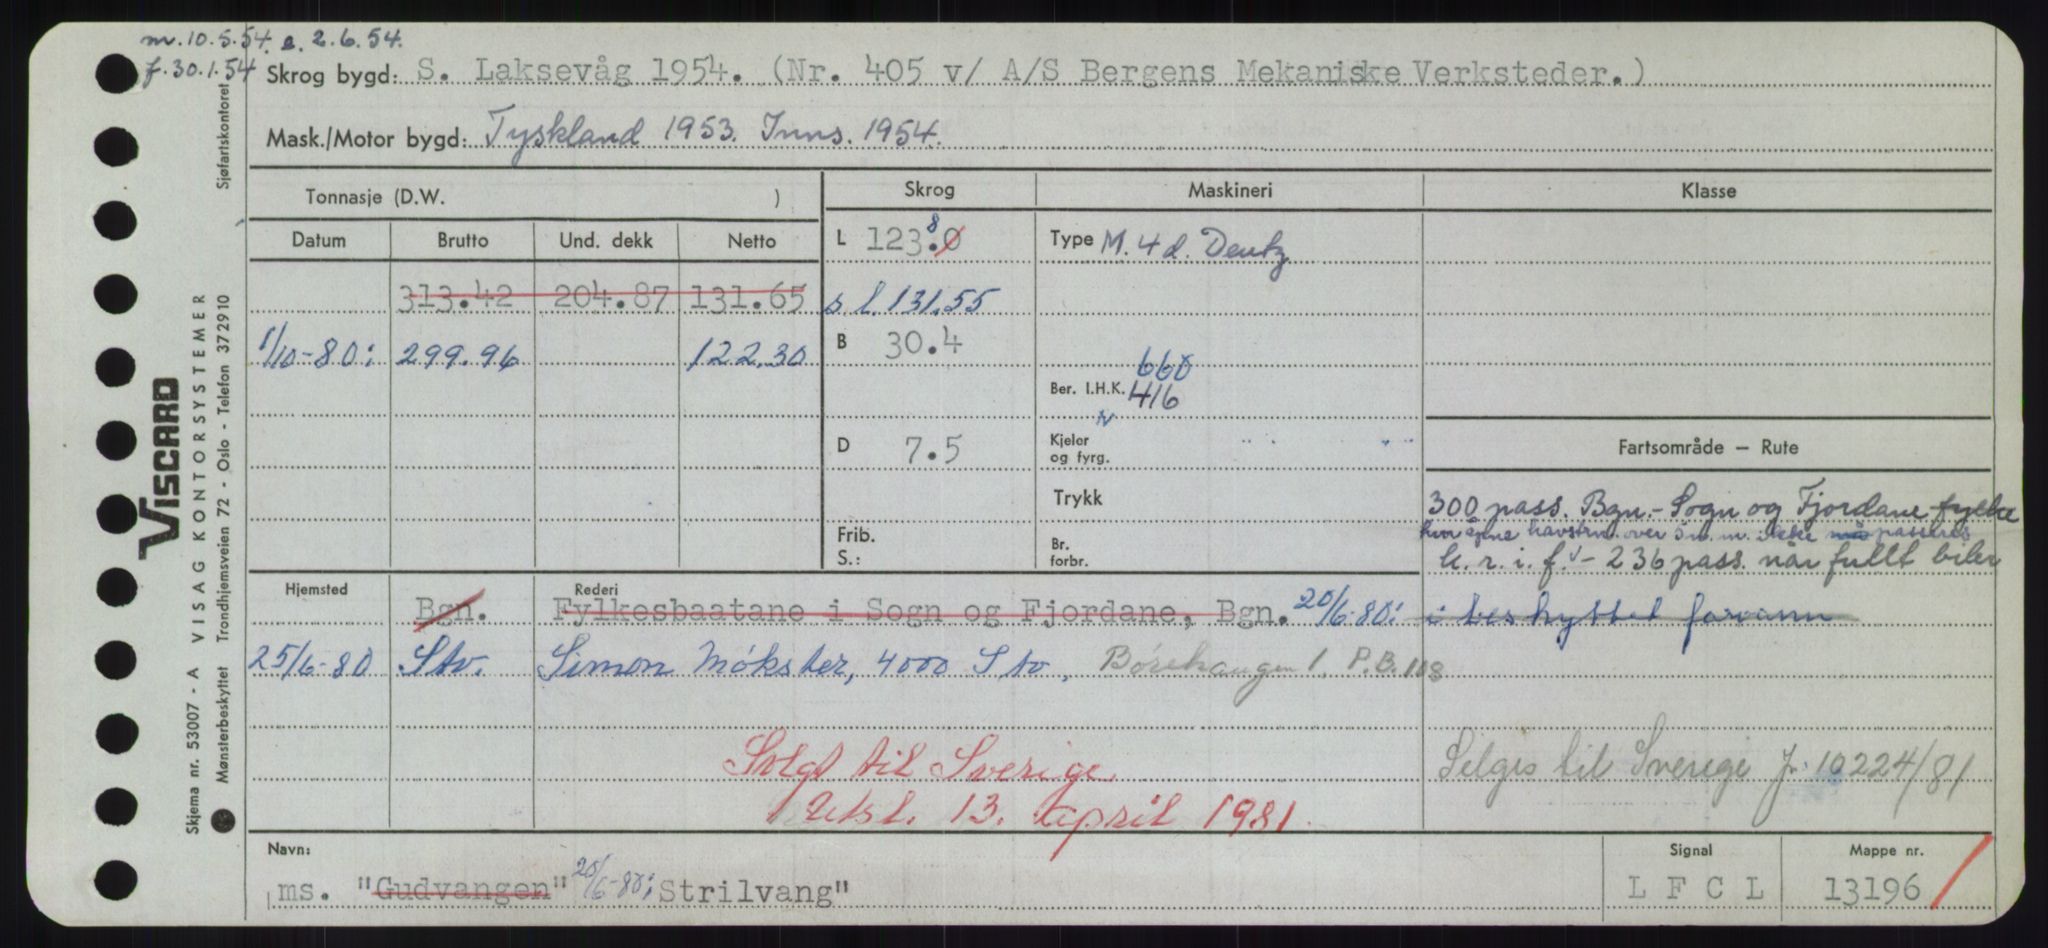 m. 10.5.54. e. 2.6.54.
f. 30.1.54
Skrog bygd: S. Laksevåg 1954. (Nr. 405 v/ A/S Bergens Mekaniske Verksteder.)
Mask./Motor bygd: Tyskland 1953. Inns. 1954.
Tonnasje (D.W. ) Skrog Maskineri Klasse
Datum Brutto Und. dekk Netto L 123.0 8 Type M. 4 d. Deutz
313.42 204.87 131.65 s l. 131.55
1/10-80: 299.96 122.30 B 30.4
660
Ber. I.H.K. 416
N
D 7.5 Kjeler og fyrg. Fartsområde — Rute
Trykk 300 pass. Bgn.- Sogn og Fjordane fylke
hvor åpne havstrn. over 5 n. m. ikke må passeres
Frib. S.: Br. forbr. k. r. i. f. - 236 pass. når fullt biler
Hjemsted Rederi
Bgn. Fylkesbaatane i Sogn og Fjordane, Bgn. 20/6-80: i beskyttet farvann
25/6-80 Stv. Simon Møkster, 4000 Stv. Børehaugen 1. P.B. 108
Solgt til Sverige Selges til Sverige Jr. 10224/81
Utsl. 13. april 1981.
Navn: Signal Mappe nr.
ms. "Gudvangen" 20/6-80: Strilvang" L F C L 13196
Sjøfartskontoret
VISCARD
VISAG KONTORSYSTEMER
Trondhjemsveien 72 - Oslo - Telefon 372910
Skjema nr. 53007 - A
Mønsterbeskyttet